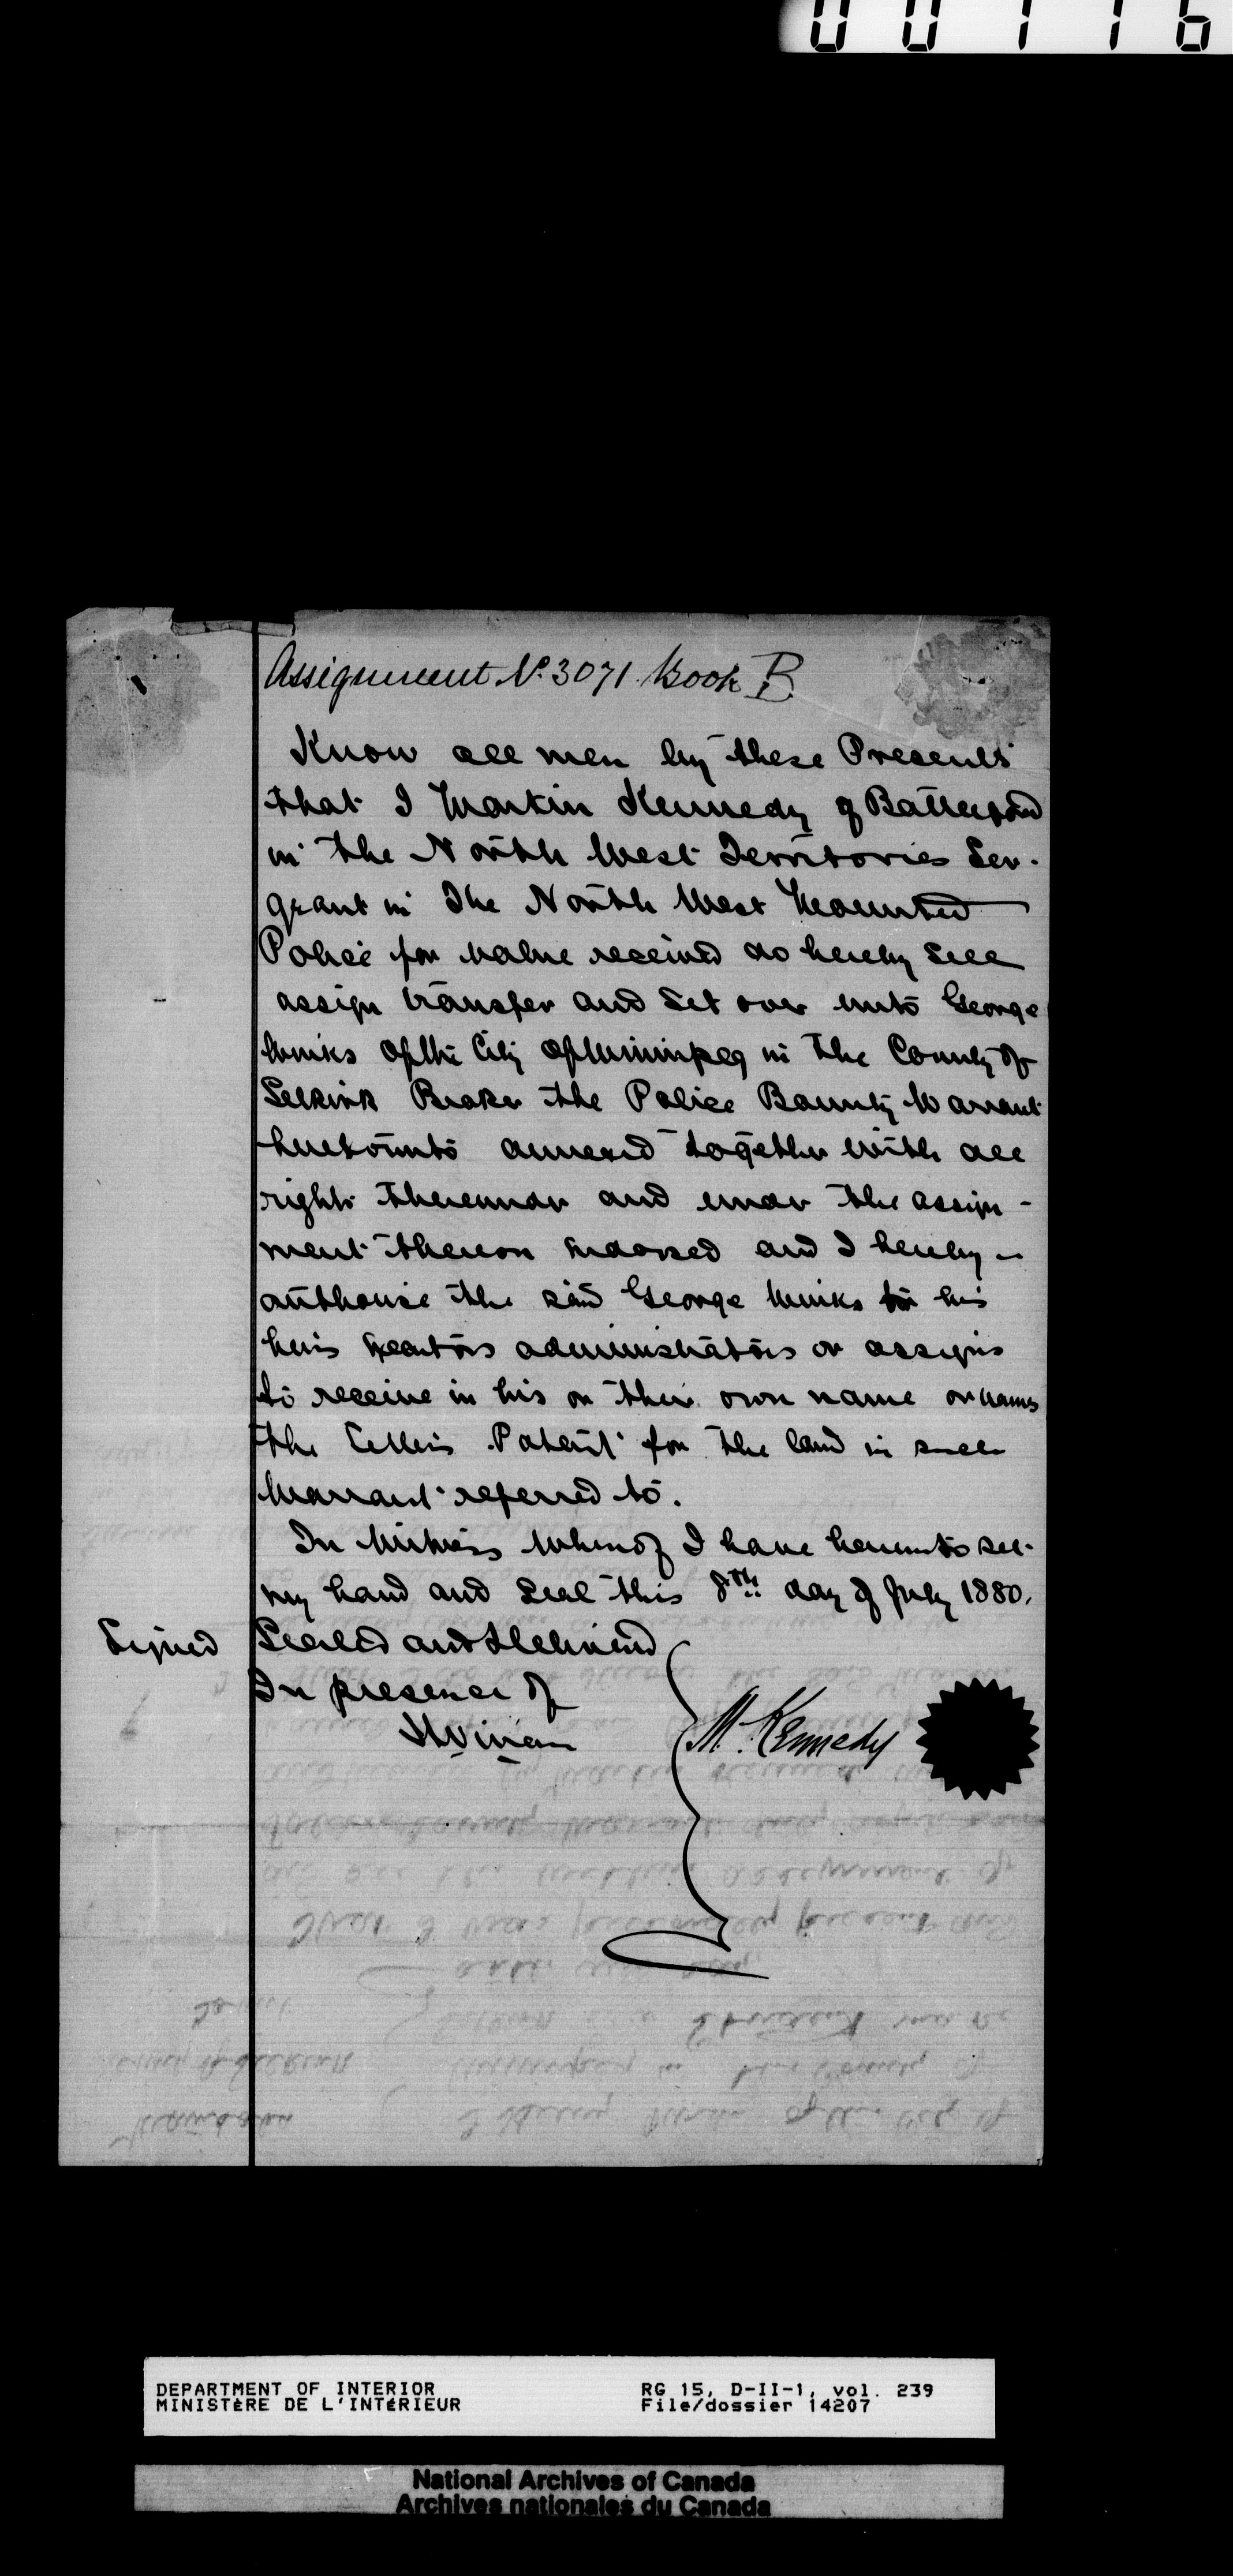 00116
Assignment No. 3071 Book B
Know all men by these Presents
that I Martin Kennedy of Battleford
in the North West Territories Ser-
geant in the North West Mounted
Police for value received do hereby sell
assign transfer and set over unto George
of the City of Winnipeg in the County of
Selkirk Broker the Police Bounty Warrant
hereunto annexed together with all
rights thereunder and under the assign-
ment thereon indorsed and I hereby
authorize the said George his
heirs executors administrators or assigns
to receive in his or their own name or names
the Letters Patent for the land in such
Warrant referred to.
In Witness Whereof I have hereunto set
my hand and seal this 8th day of July 1880.
Signed Sealed and Delivered
In presence of
M. Kennedy
DEPARTMENT OF INTERIOR
MINISTÈRE DE L'INTÉRIEUR
RG 15, D-II-1, vol. 239
File/dossier 14207
National Archives of Canada
Archives nationales du Canada